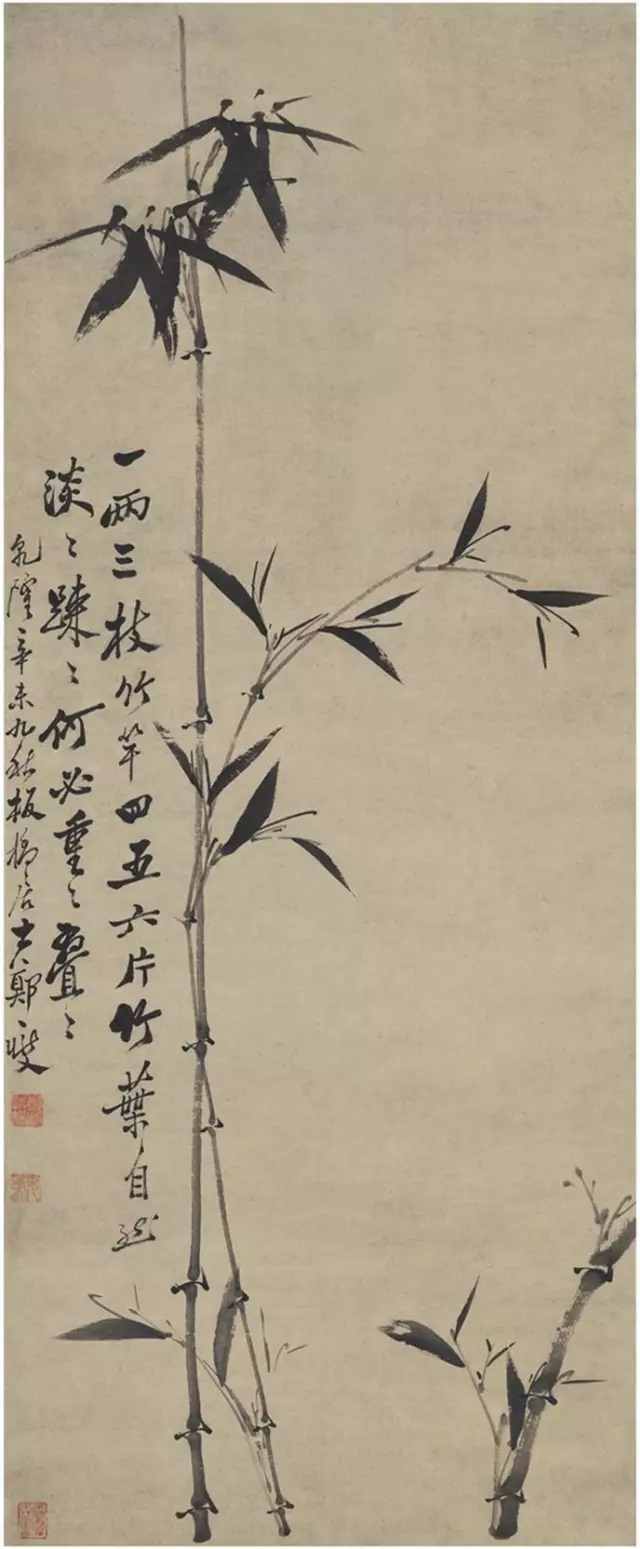 一两三枝竹竿四五六片竹葉自然
淡〻踈〻何必重〻叠〻
乾隆辛未九秋板橋居士鄭燮